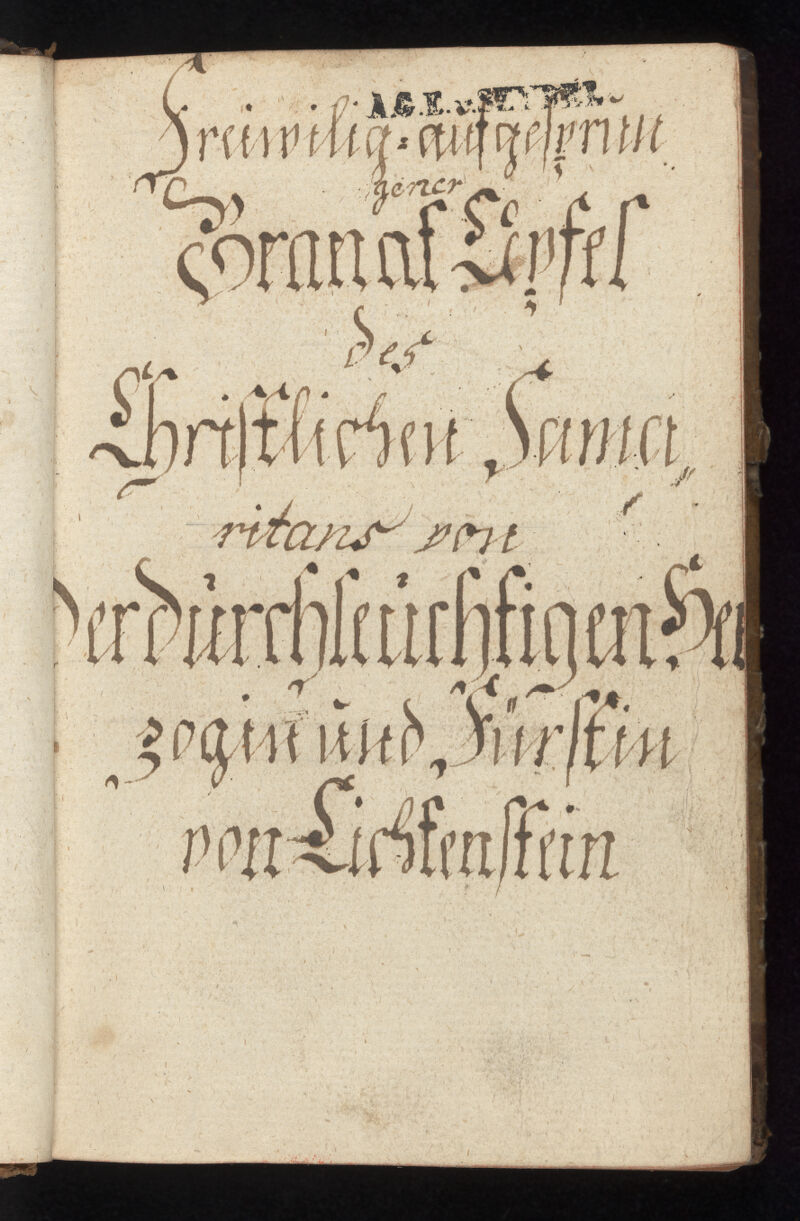 A.G.E. v. SEYDEL.
Freiwilig=aufgesprun
gener
Granat Äpfel
des
Christlichen Sama„
ritans von
der dürchleüchtigen Her
zogin ünd Fürstin
von Lichtenstein